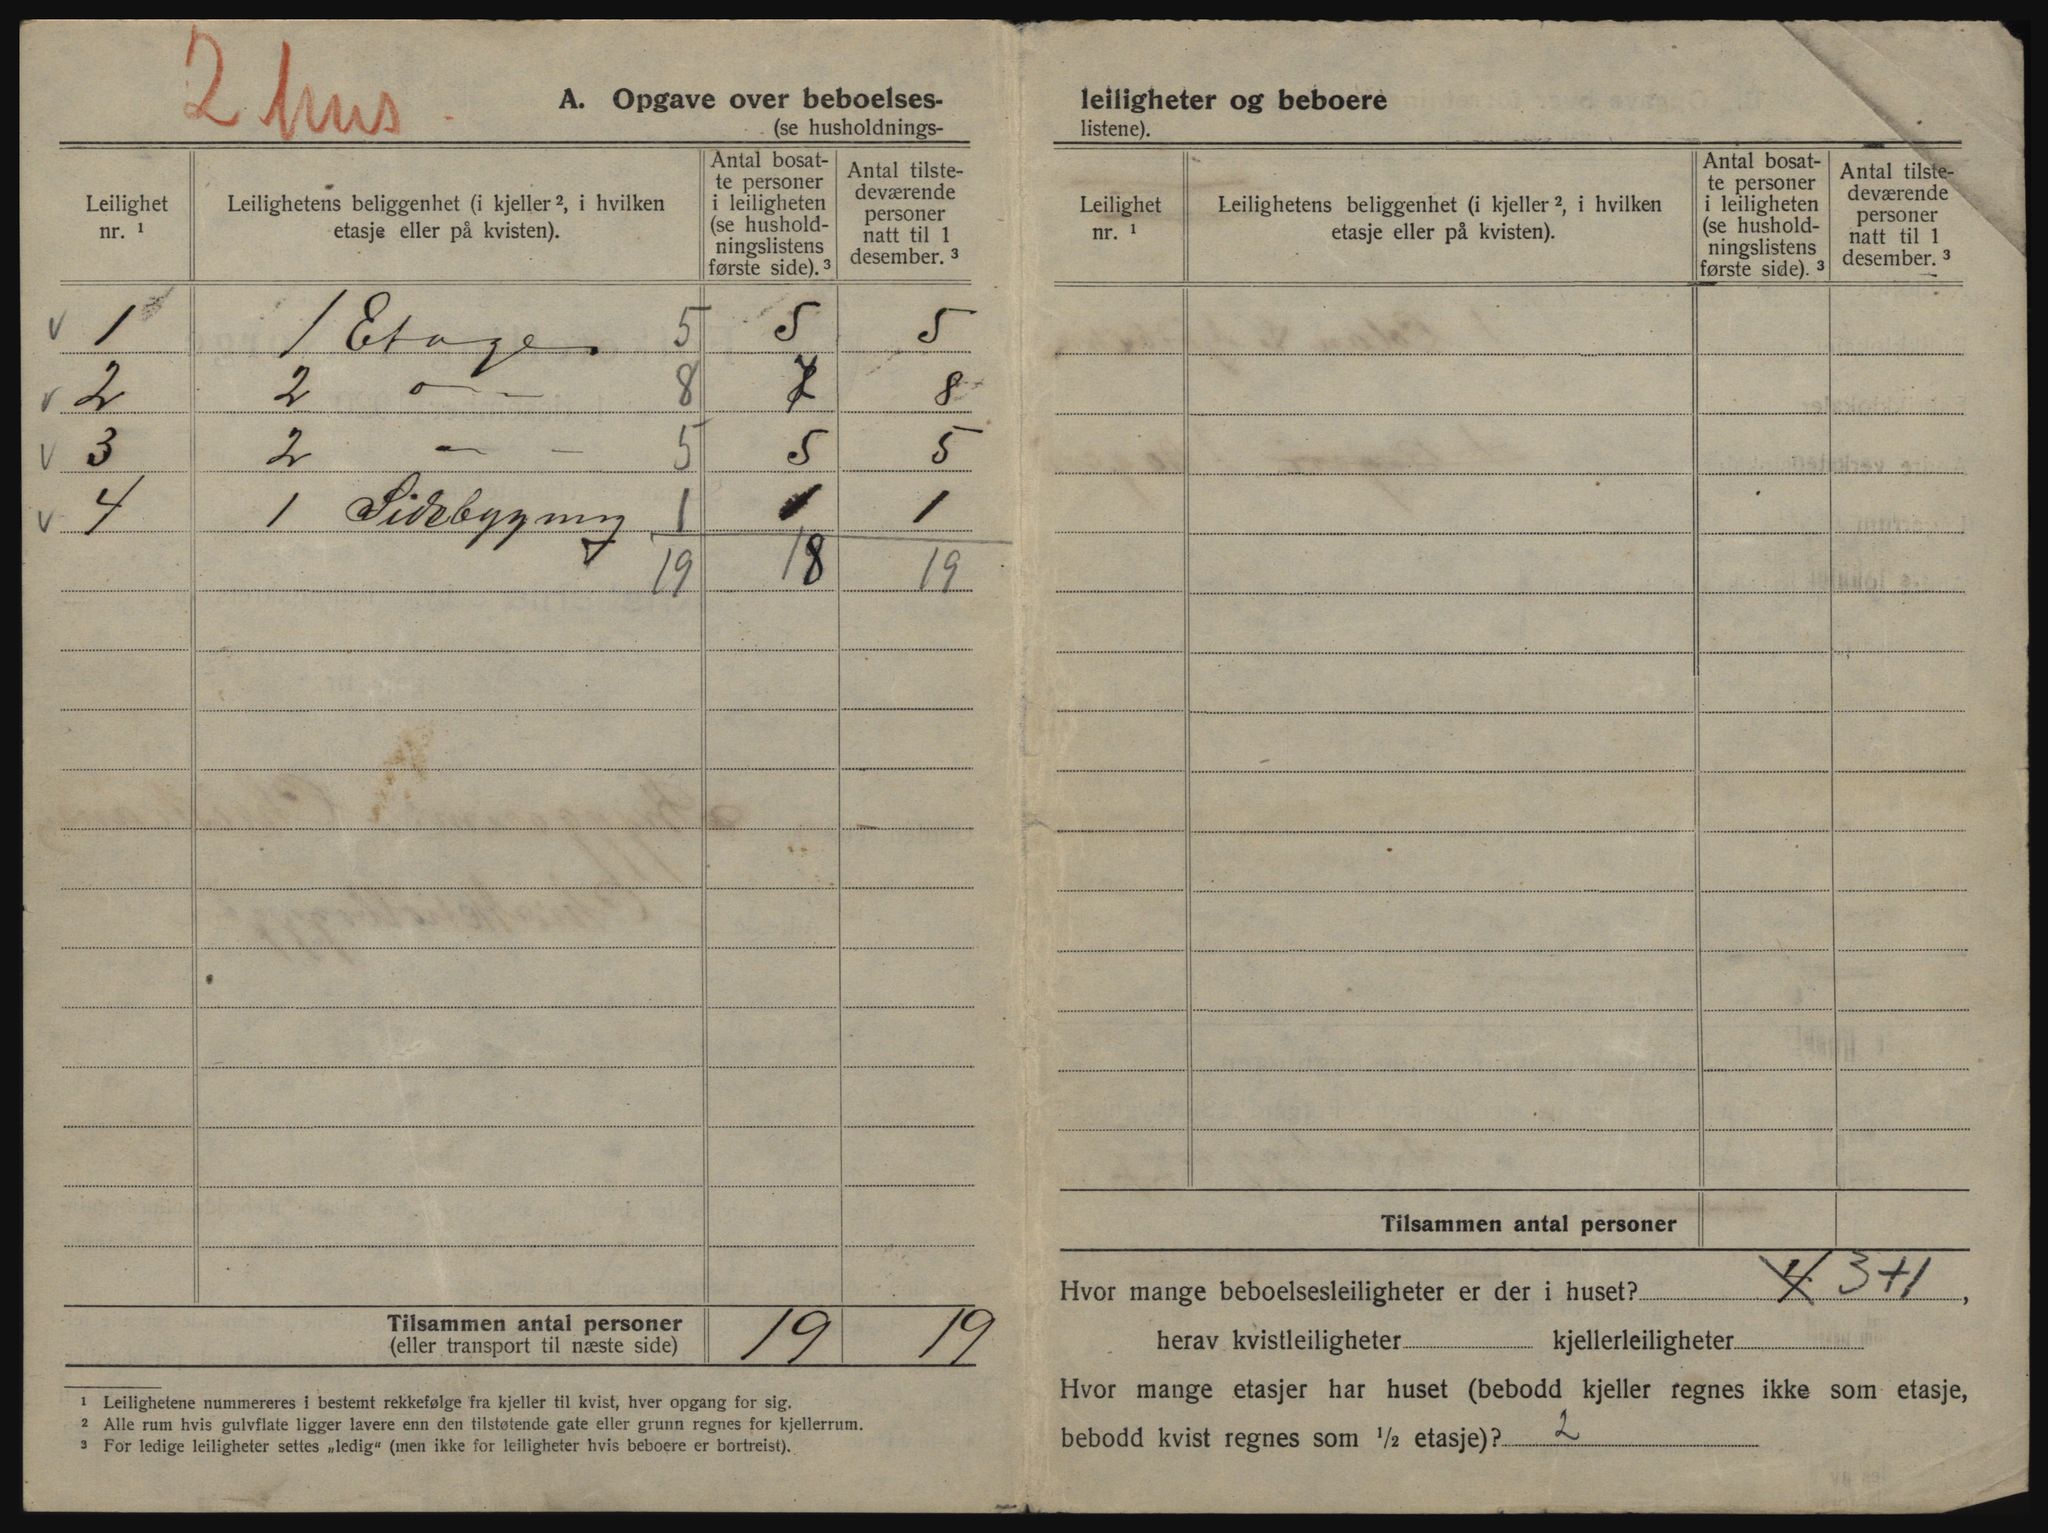 2 hus.
A. Opgave over beboelses-
(se husholdnings-
Leilighet nr. ¹
Leilighetens beliggenhet (i kjeller ², i hvilken etasje eller på kvisten).
Antal bosat-
te personer
i leiligheten
(se hushold-
ningslistens
første side). ³
Antal tilste-
deværende
personer
natt til 1
desember. ³
v 1 1 Etage 5 5 5
v 2 2 — 8 7 8
v 3 2 — — 5 5 5
v 4 1 Sidebygning 1 1 1
19 18 19
Tilsammen antal personer 19 19
(eller transport til næste side)
¹ Leilighetene nummereres i bestemt rekkefølge fra kjeller til kvist, hver opgang for sig.
² Alle rum hvis gulvflate ligger lavere enn den tilstøtende gate eller grunn regnes for kjellerrum.
³ For ledige leiligheter settes „ledig“ (men ikke for leiligheter hvis beboere er bortreist).
leiligheter og beboere
listene).
Leilighet nr. ¹
Leilighetens beliggenhet (i kjeller ², i hvilken etasje eller på kvisten).
Antal bosat-
te personer
i leiligheten
(se hushold-
ningslistens
første side). ³
Antal tilste-
deværende
personer
natt til 1
desember. ³
Tilsammen antal personer
Hvor mange beboelsesleiligheter er der i huset? 4 3+1,
herav kvistleiligheter kjellerleiligheter
Hvor mange etasjer har huset (bebodd kjeller regnes ikke som etasje,
bebodd kvist regnes som ½ etasje)? 2